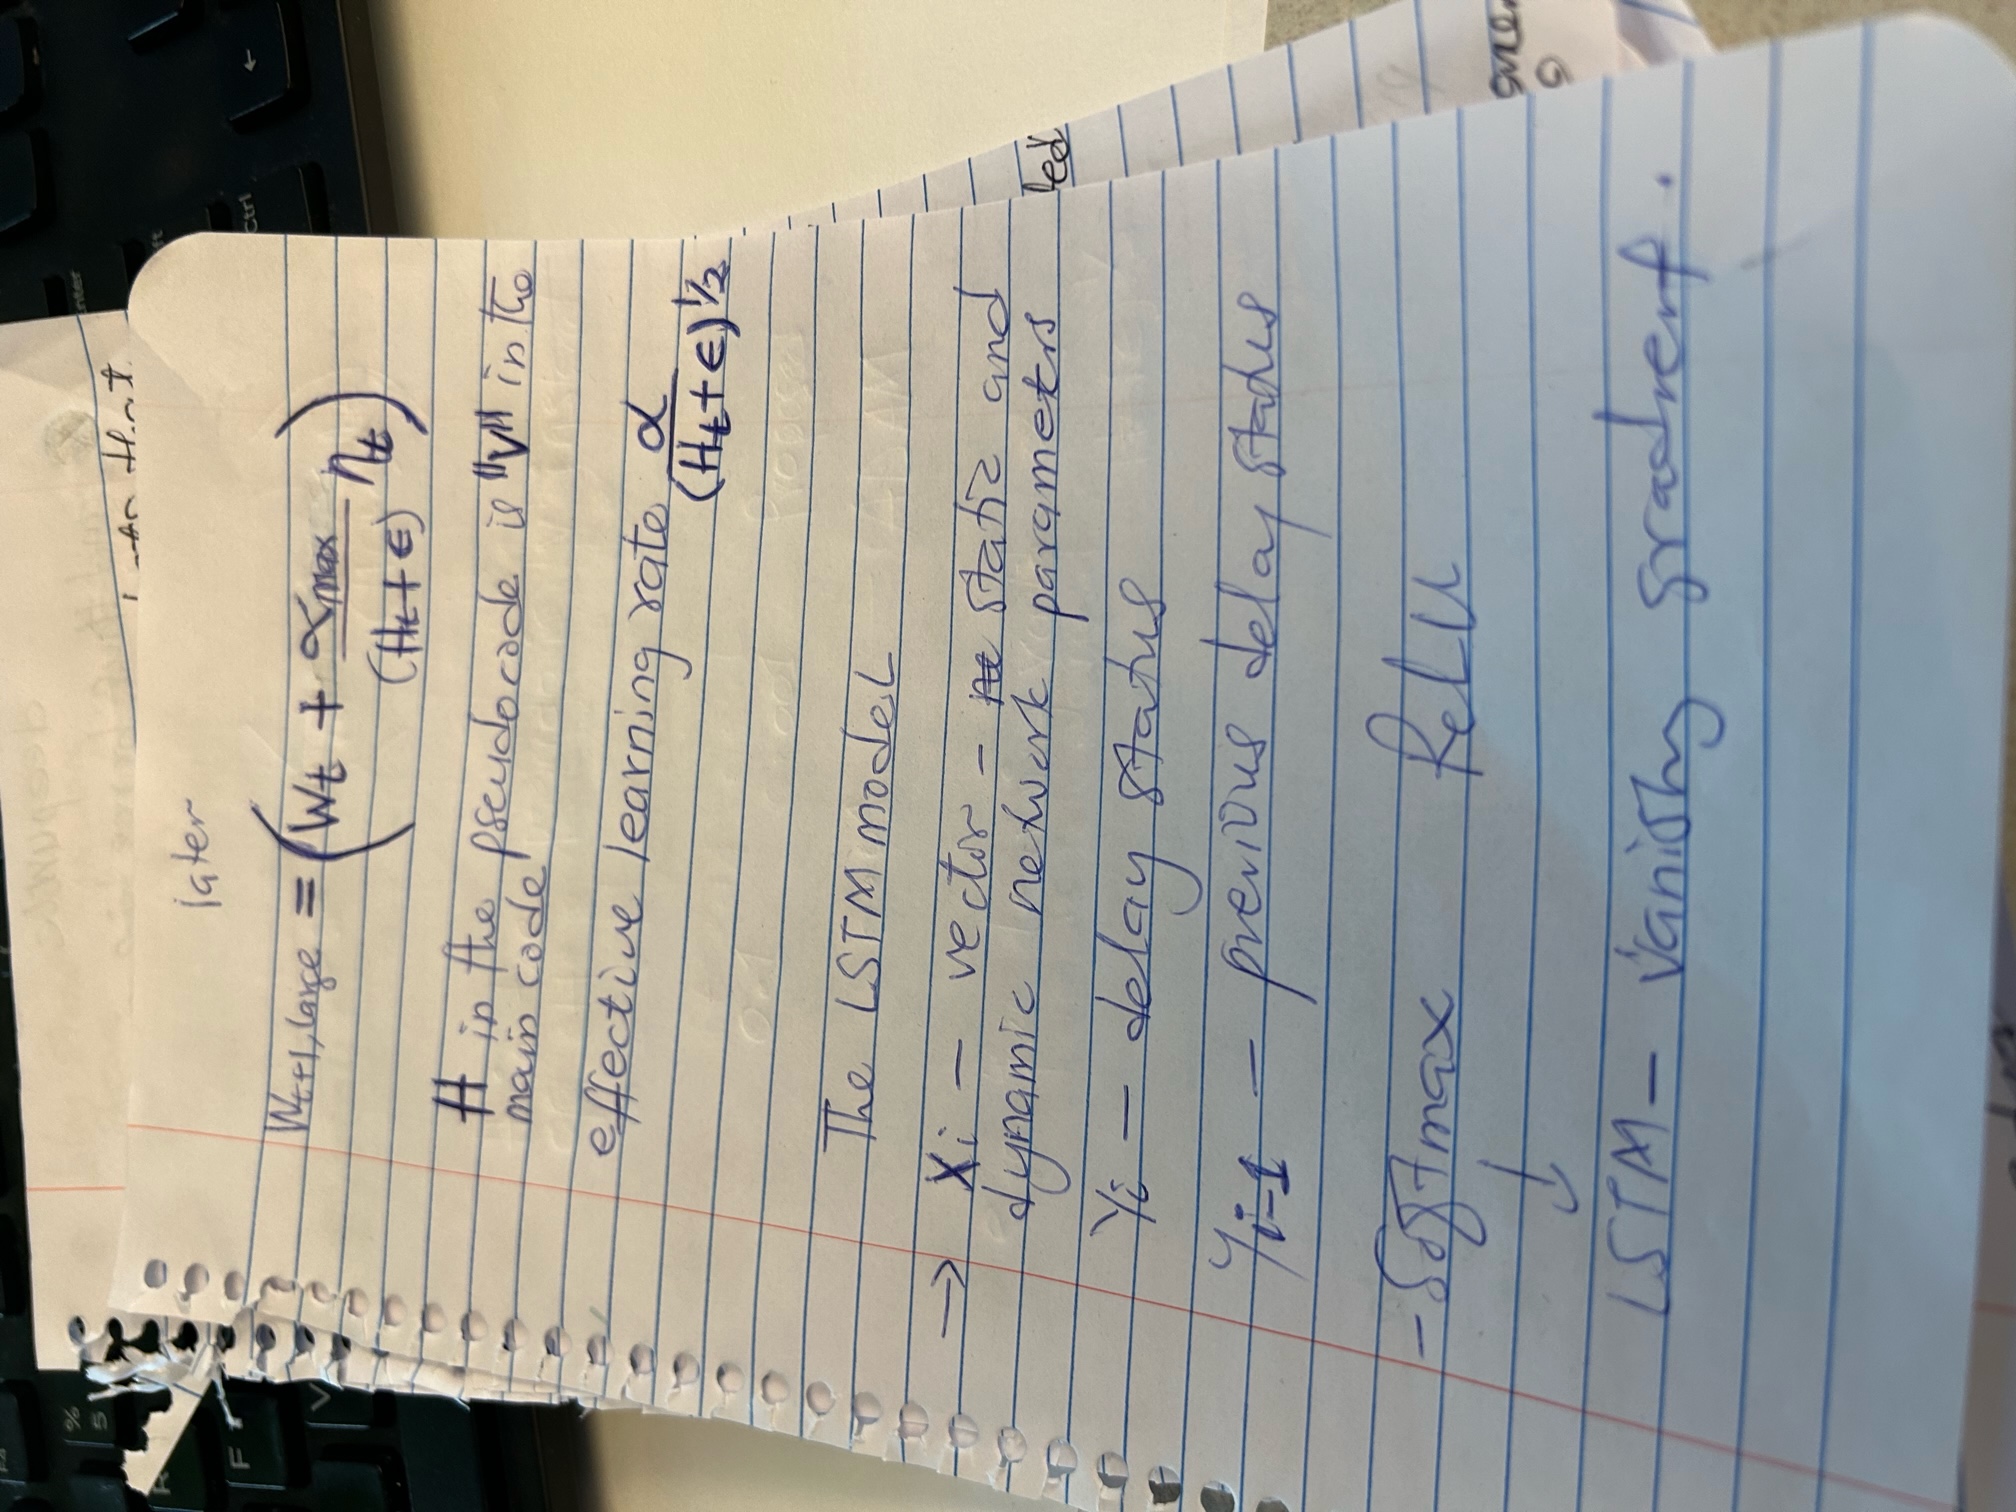 later
W_{t+1, large} = (W_t + α_max / (H_t + ϵ) n_t)
H in the pseudocode is "V" in the
main code
effective learning rate α / (H_t + ϵ)^{1/2}
The LSTM model
→ Xi – vector – static and
dynamic network parameters
Yi – delay status
Yi-1 – previous delay status
- Softmax ReLU
↓
LSTM – vanishing gradient.
that
led
% 5
F
V
Enter
Ctrl
←